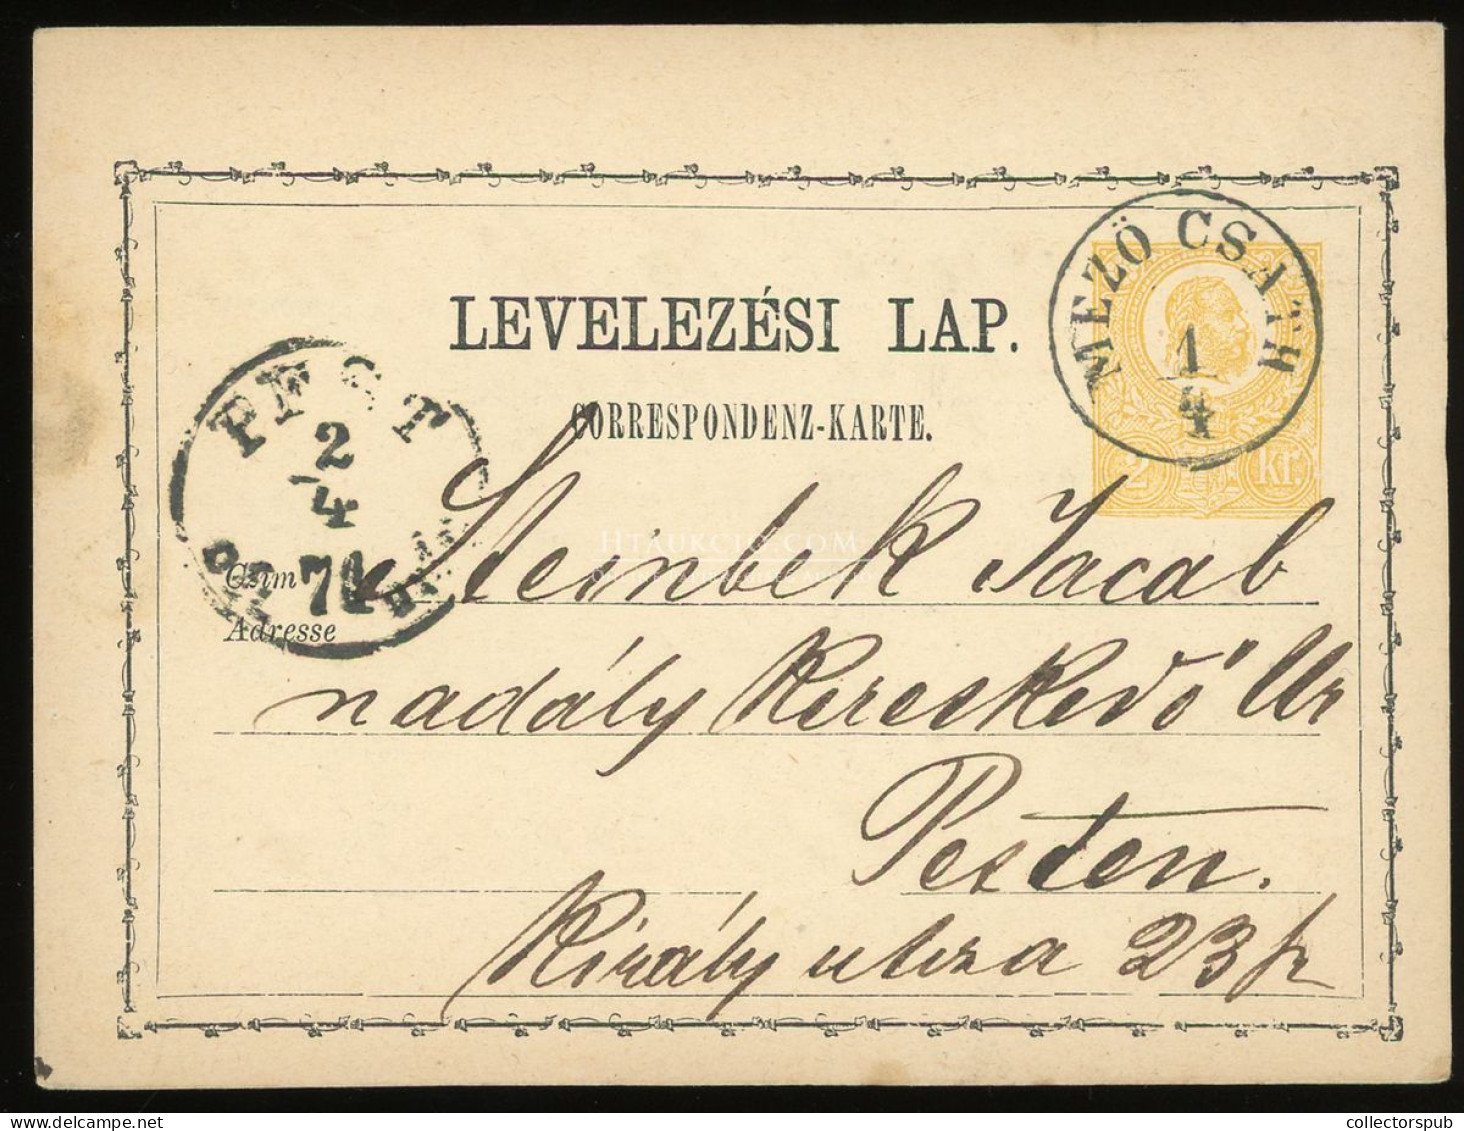 MEZÖ CSÁTH
1
4
LEVELEZÉSI LAP.
CORRESPONDENZ-KARTE.
2 kr.
PEST
2
4
74
Czim
Adresse
Steinbek Jacab
nadály Kereskedö Ur
Pesten.
Király utsza 23
HTAUKCIO.COM
collectorspub